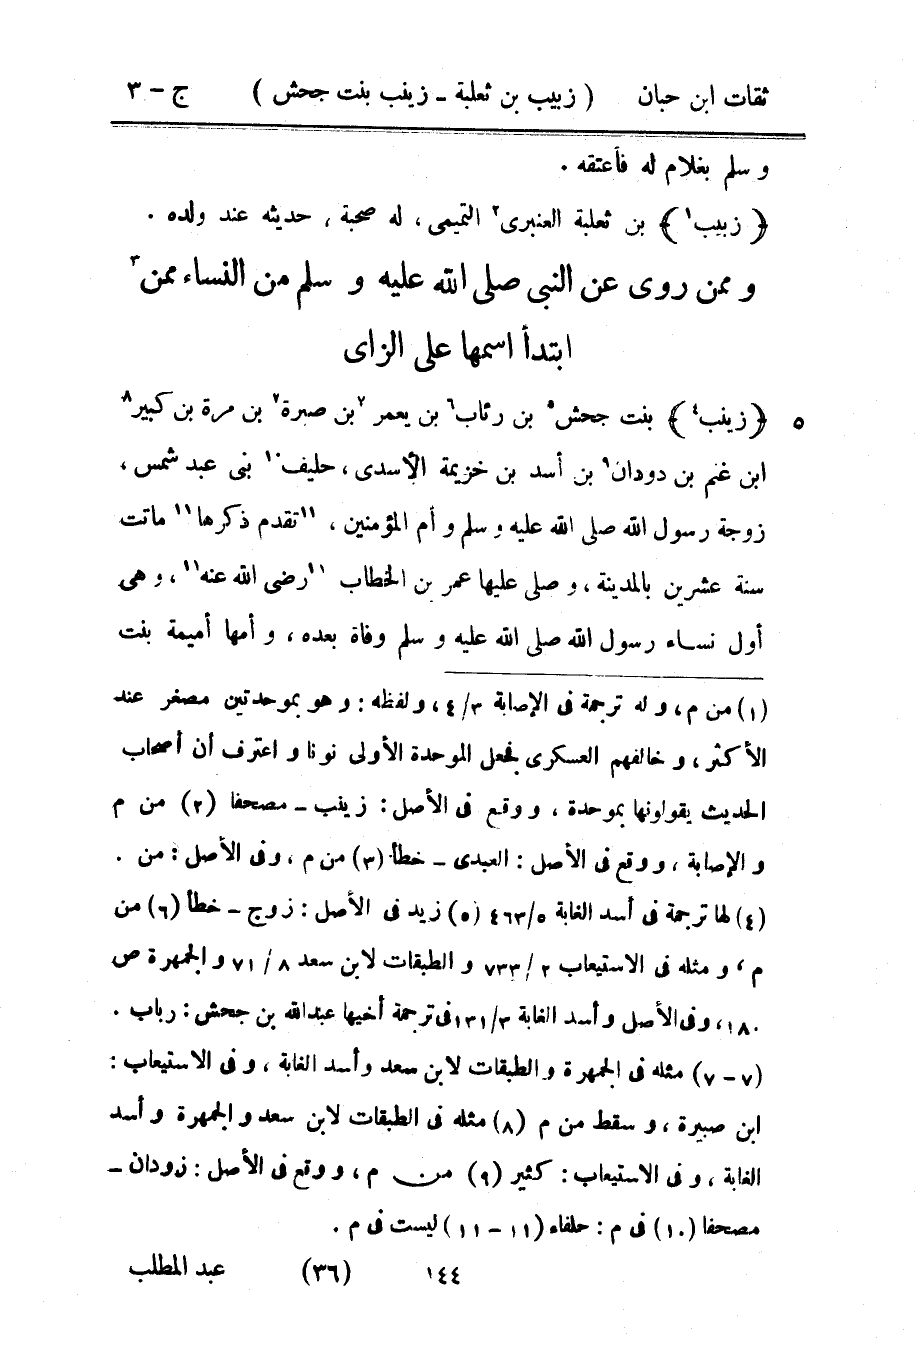 ثقات ابن حبان ( زبيب بن ثعلبة ـ زينب بنت جحش ) ج - ٣
و سلم بغلام له فأعتقه .
﴿ زبيب١ ﴾ بن ثعلبة العنبرى٢ التميمى ، له صحبة ، حديثه عند ولده .
و ممن روى عن النبى صلى الله عليه و سلم من النساء ممن٣
ابتدأ اسمها على الزاى
٥ ﴿ زينب٤ ﴾ بنت جحش٥ بن رئاب٦ بن يعمر ٧بن صبرة٧ بن مرة بن كبير٨
ابن غنم بن دودان٩ بن أسد بن خزيمة الأسدى ، حليف١٠ بنى عبد شمس ،
زوجة رسول الله صلى الله عليه و سلم و أم المؤمنين ، ١١تقدم ذكرها١١ ماتت
سنة عشرين بالمدينة ، و صلى عليها عمر بن الخطاب ١١رضى الله عنه١١ ، و هى
أول نساء رسول الله صلى الله عليه و سلم وفاة بعده ، و أمها أميمة بنت
(١) من م ، و له ترجمة فى الإصابة ٣/ ٤ ، و لفظه : و هو بموحدتين مصغر عند
الأكثر ، و خالفهم العسكرى فجعل الموحدة الأولى نونا و اعترف أن أصحاب
الحديث يقولونها بموحدة ، و وقع فى الأصل : زينب ـ مصحفا (٢) من م
و الإصابة ، و وقع فى الأصل : العبدى ـ خطأ (٣) من م ، و فى الأصل : من .
(٤) لها ترجمة فى أسد الغابة ٥/ ٤٦٣ (٥) زيد فى الأصل : زوج ـ خطأ (٦) من
م ، و مثله فى الاستيعاب ٢ / ٧٣٣ و الطبقات لابن سعد ٨ / ٧١ و الجمهرة ص
١٨٠ ، و فى الأصل و أسد الغابة ٣/ ١٣١ فى ترجمة أخيها عبدالله بن جحش : رباب .
(٧ - ٧) مثله فى الجمهرة و الطبقات لابن سعد و أسد الغابة ، و فى الاستيعاب :
ابن صبيرة ، و سقط من م (٨) مثله فى الطبقات لابن سعد و الجمهرة و أسد
الغابة ، و فى الاستيعاب : كثير (٩) من م ، و وقع فى الأصل : زودان ـ
مصحفا (١٠) فى م : حلفاء (١١ - ١١) ليست فى م .
١٤٤ (٣٦) عبد المطلب